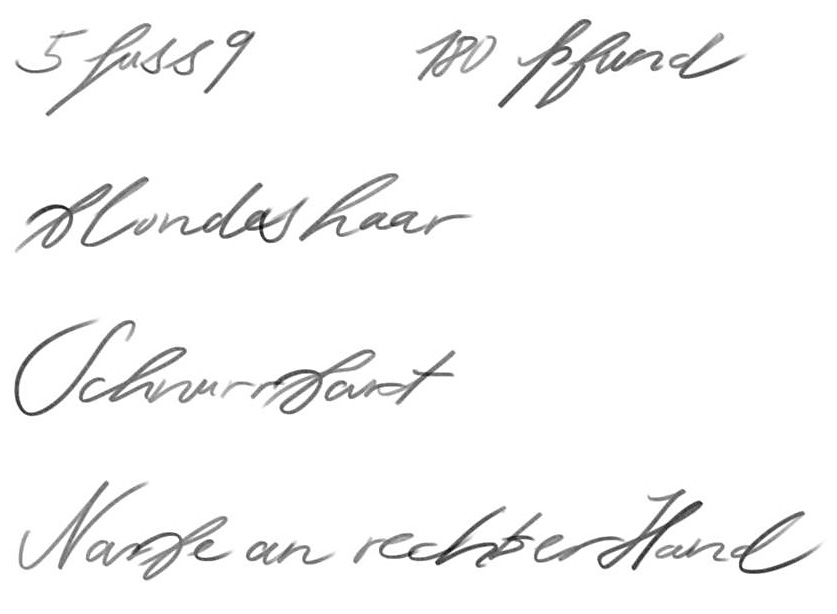 5 fuss 9 180 pfund
blondes haar
Schnurrbart
Narbe an rechter Hand